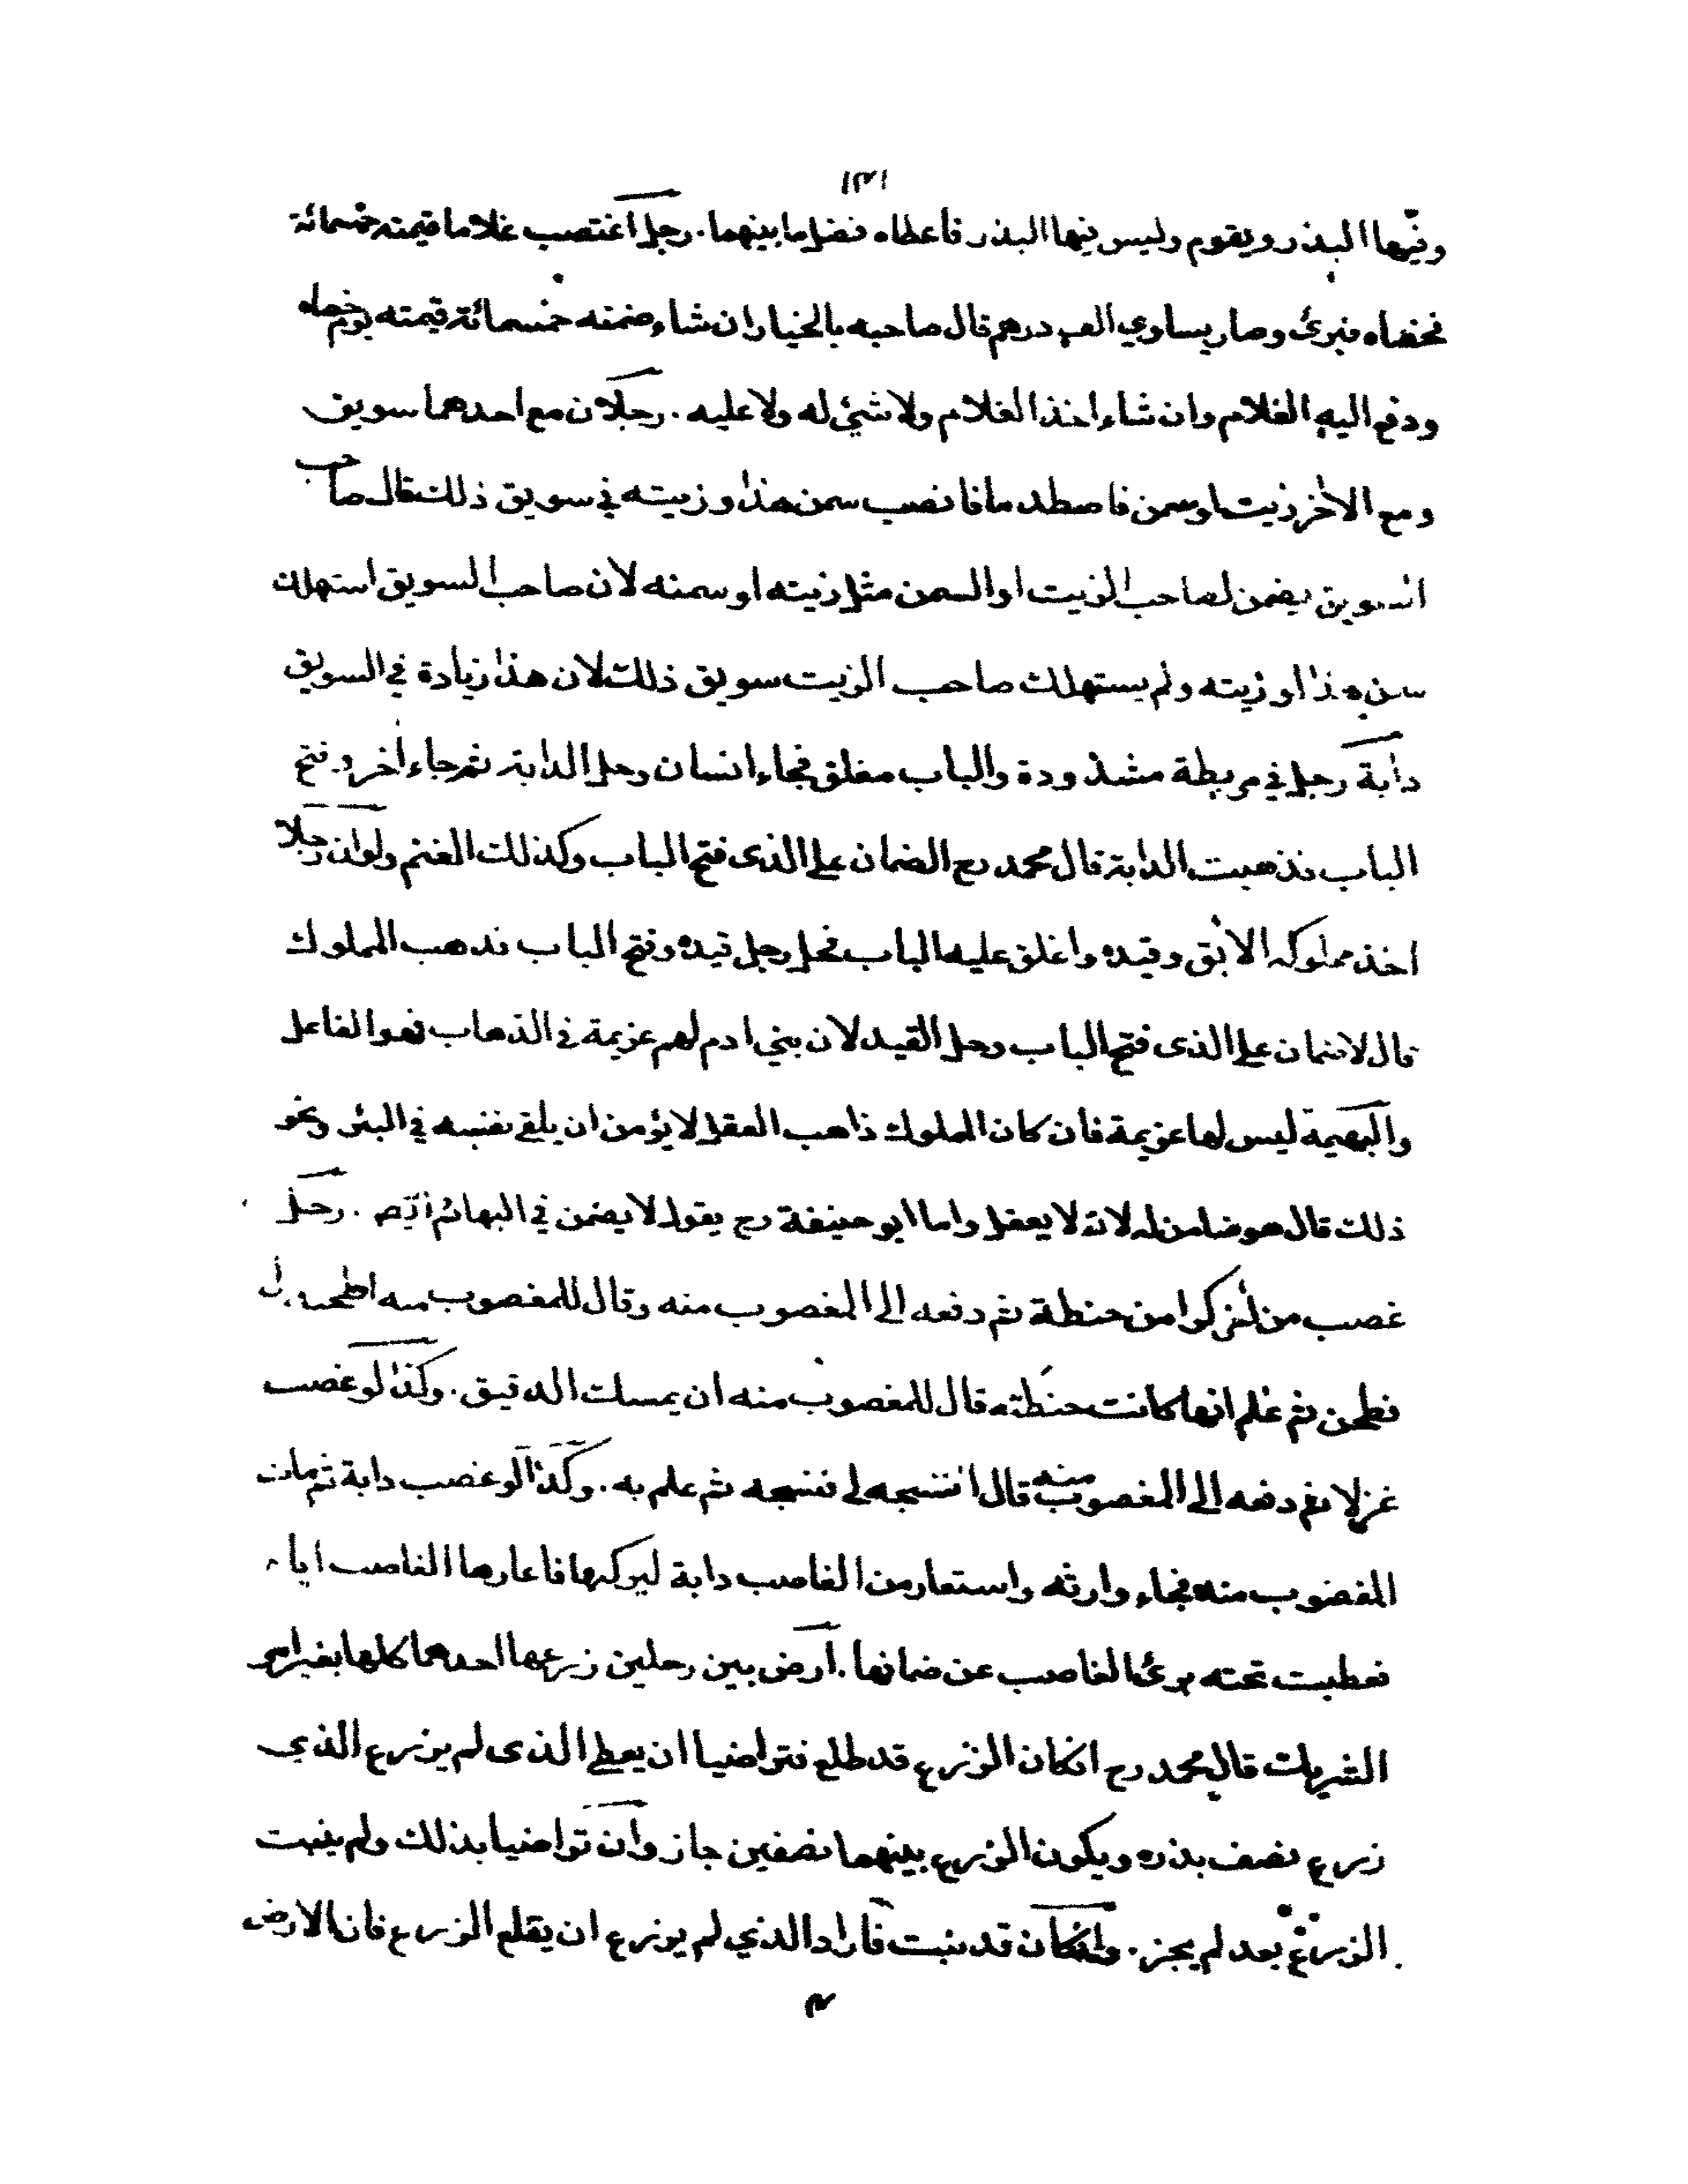 ١٣١
وفيها البذر ويقوم وليس فيها البذر فاعطاه فضل ما بينهما . رجل اغتصب غلاما قيمته خمسمائة
فخصاه فبرئ وصار يساوي الف درهم قال صاحبه بالخيار ان شاء ضمنه خمسمائة قيمته يوم خصاه
ودفع اليه الغلام وان شاء اخذ الغلام ولا شئ له ولا عليه . رجلان مع احدهما سويق
ومع الاخر زيت او سمن فاصطدما فانصب سمن هذا وزيته في سويق ذلك قال صاحب
السويق يضمن لصاحب الزيت او السمن مثل زيته او سمنه لان صاحب السويق استهلك
سمن هذا او زيته ولم يستهلك صاحب الزيت سويق ذلك لان هذا زيادة في السويق
دابة رجل في مربطة مشدودة والباب مغلق فجاء انسان وحل الدابة ثم جاء اخر وفتح
الباب فذهبت الدابة قال محمد رح الضمان على الذى فتح الباب وكذلك الغنم ولو ان رجلا
اخذ مملوكه الابق وقيده واغلق عليه الباب فحل رجل قيده وفتح الباب فذهب المملوك
قال لاضمان على الذى فتح الباب وحل القيد لان بني ادم لهم عزيمة في الذهاب فهو الفاعل
والبهيمة ليس لها عزيمة فان كان المملوك ذاهب العقل لا يؤمن ان يلقي نفسه في البئر ونحو
ذلك قال هو ضامن له لانه لا يعقل واما ابو حنيفة رح يقول لا يضمن في البهائم ايض . رجل
غصب من اخر كرا من حنطة ثم دفعه الى المغصوب منه وقال للمغصوب منه اطحنه لى
فطحن ثم علم انها كانت حنطته قال للمغصوب منه ان يمسك الدقيق . وكذا لو غصب
غزلا ثم دفعه الى المغصوب منه قال انسجه لي فنسجه ثم علم به . وكذا لو غصب دابة ثم مات
المغضوب منه فجاء وارثه واستعار من الغاصب دابة ليركبها فاعارها الغاصب اياه
فعطبت تحته برئ الغاصب عن ضمانها . ارض بين رجلين زرعها احدهما كلها بغير امر
الشريك قال محمد رح انكان الزرع قد طلع فتراضيا ان يعطي الذى لم يزرع الذي
زرع نصف بذره ويكون الزرع بينهما نصفين جاز وان تراضيا بذلك ولم ينبت
الزرع بعد لم يجز . وانكان قد نبت فاراد الذي لم يزرع ان يقلع الزرع فان الارض